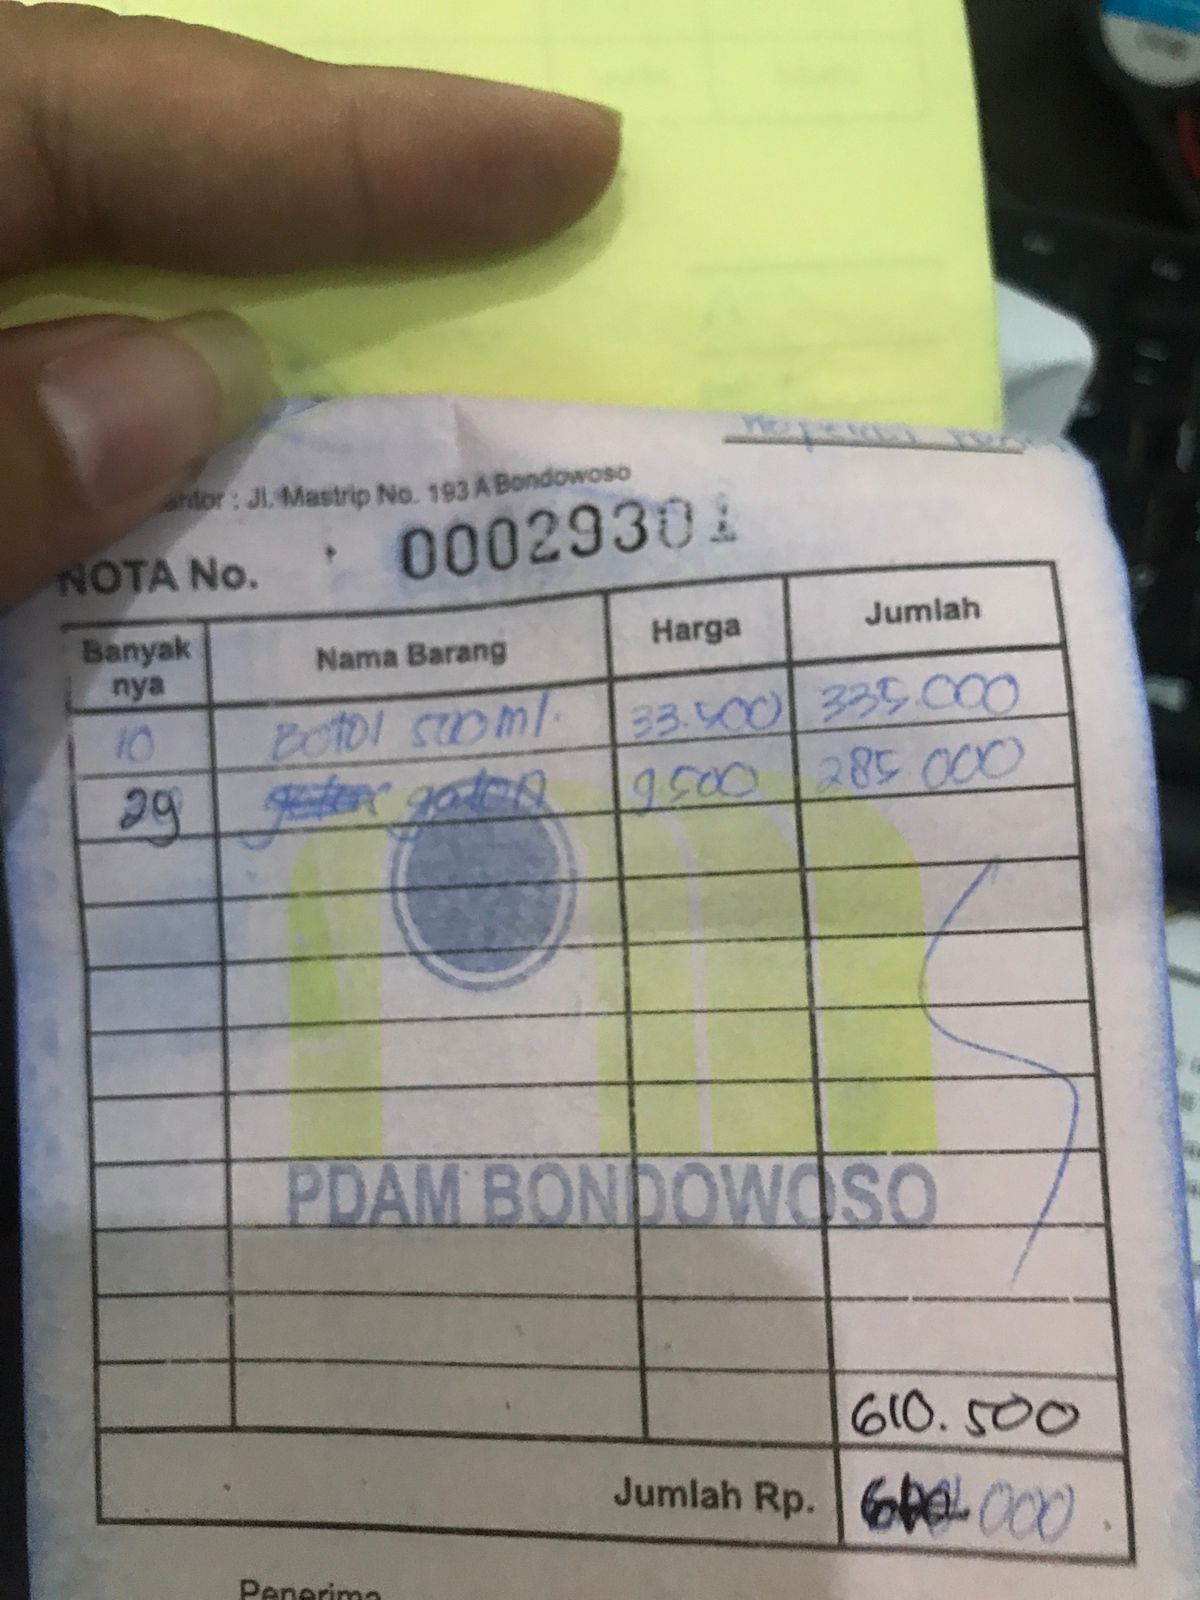 Kantor : Jl. Mastrip No. 193 A Bondowoso
NOTA No. 00029301
Banyak nya Nama Barang Harga Jumlah
10 Botol 500 ml. 33.500 335.000
29 galon 9500 285.000
PDAM BONDOWOSO
610.500
Jumlah Rp. 000
Penerima